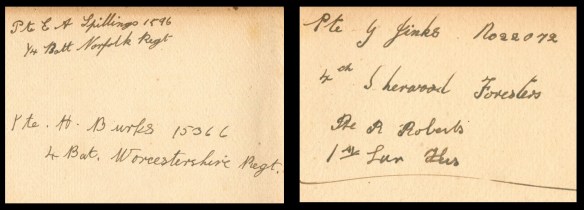 Pte E A Spillings 1596
1/4 Batt Norfolk Regt
Pte. H. Burks 15366
4 Bat. Worcestershire Regt.
Pte G Jinks No 22072
4th Sherwood Foresters
Pte R Roberts
1st